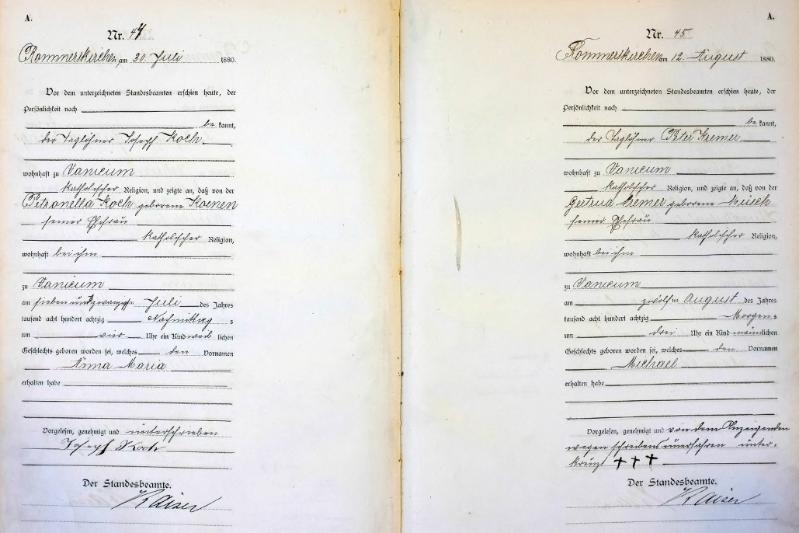 A.
Nr. 44
Rommerskirchen, am 30 Juli 1880.
Vor dem unterzeichneten Standesbeamten erschien heute, der
Persönlichkeit nach
be kannt,
der Taglöhner Joseph Koch
wohnhaft zu Vanicum
katholischer Religion, und zeigte an, daß von der
Petronella Koch geborene Koenen
seiner Ehefrau
katholischer Religion,
wohnhaft bei ihm
zu Vanicum
am sieben und zwanzigsten Juli des Jahres
tausend acht hundert achtzig Nachmittags
um vier Uhr ein Kind weib lichen
Geschlechts geboren worden sei, welches den Vornamen
Anna Maria
erhalten habe
Vorgelesen, genehmigt und unterschrieben
Joseph Koch
Der Standesbeamte.
Kaiser
A.
Nr. 45
Rommerskirchen am 12. August 1880.
Vor dem unterzeichneten Standesbeamten erschien heute, der
Persönlichkeit nach
be kannt,
der Taglöhner Peter Kremer
wohnhaft zu Vanicum
katholischer Religion, und zeigte an, daß von der
Gertrud Kremer geborene
seiner Ehefrau
katholischer Religion,
wohnhaft bei ihm
zu Vanicum
am zwölften August des Jahres
tausend acht hundert achtzig Morgens
um drei Uhr ein Kind männlichen
Geschlechts geboren worden sei, welches den Vornamen
Michael
erhalten habe
Vorgelesen, genehmigt und von dem Anzeigenden
wegen schreibens unerfahren unter-
kreuzt +++
Der Standesbeamte.
Kaiser